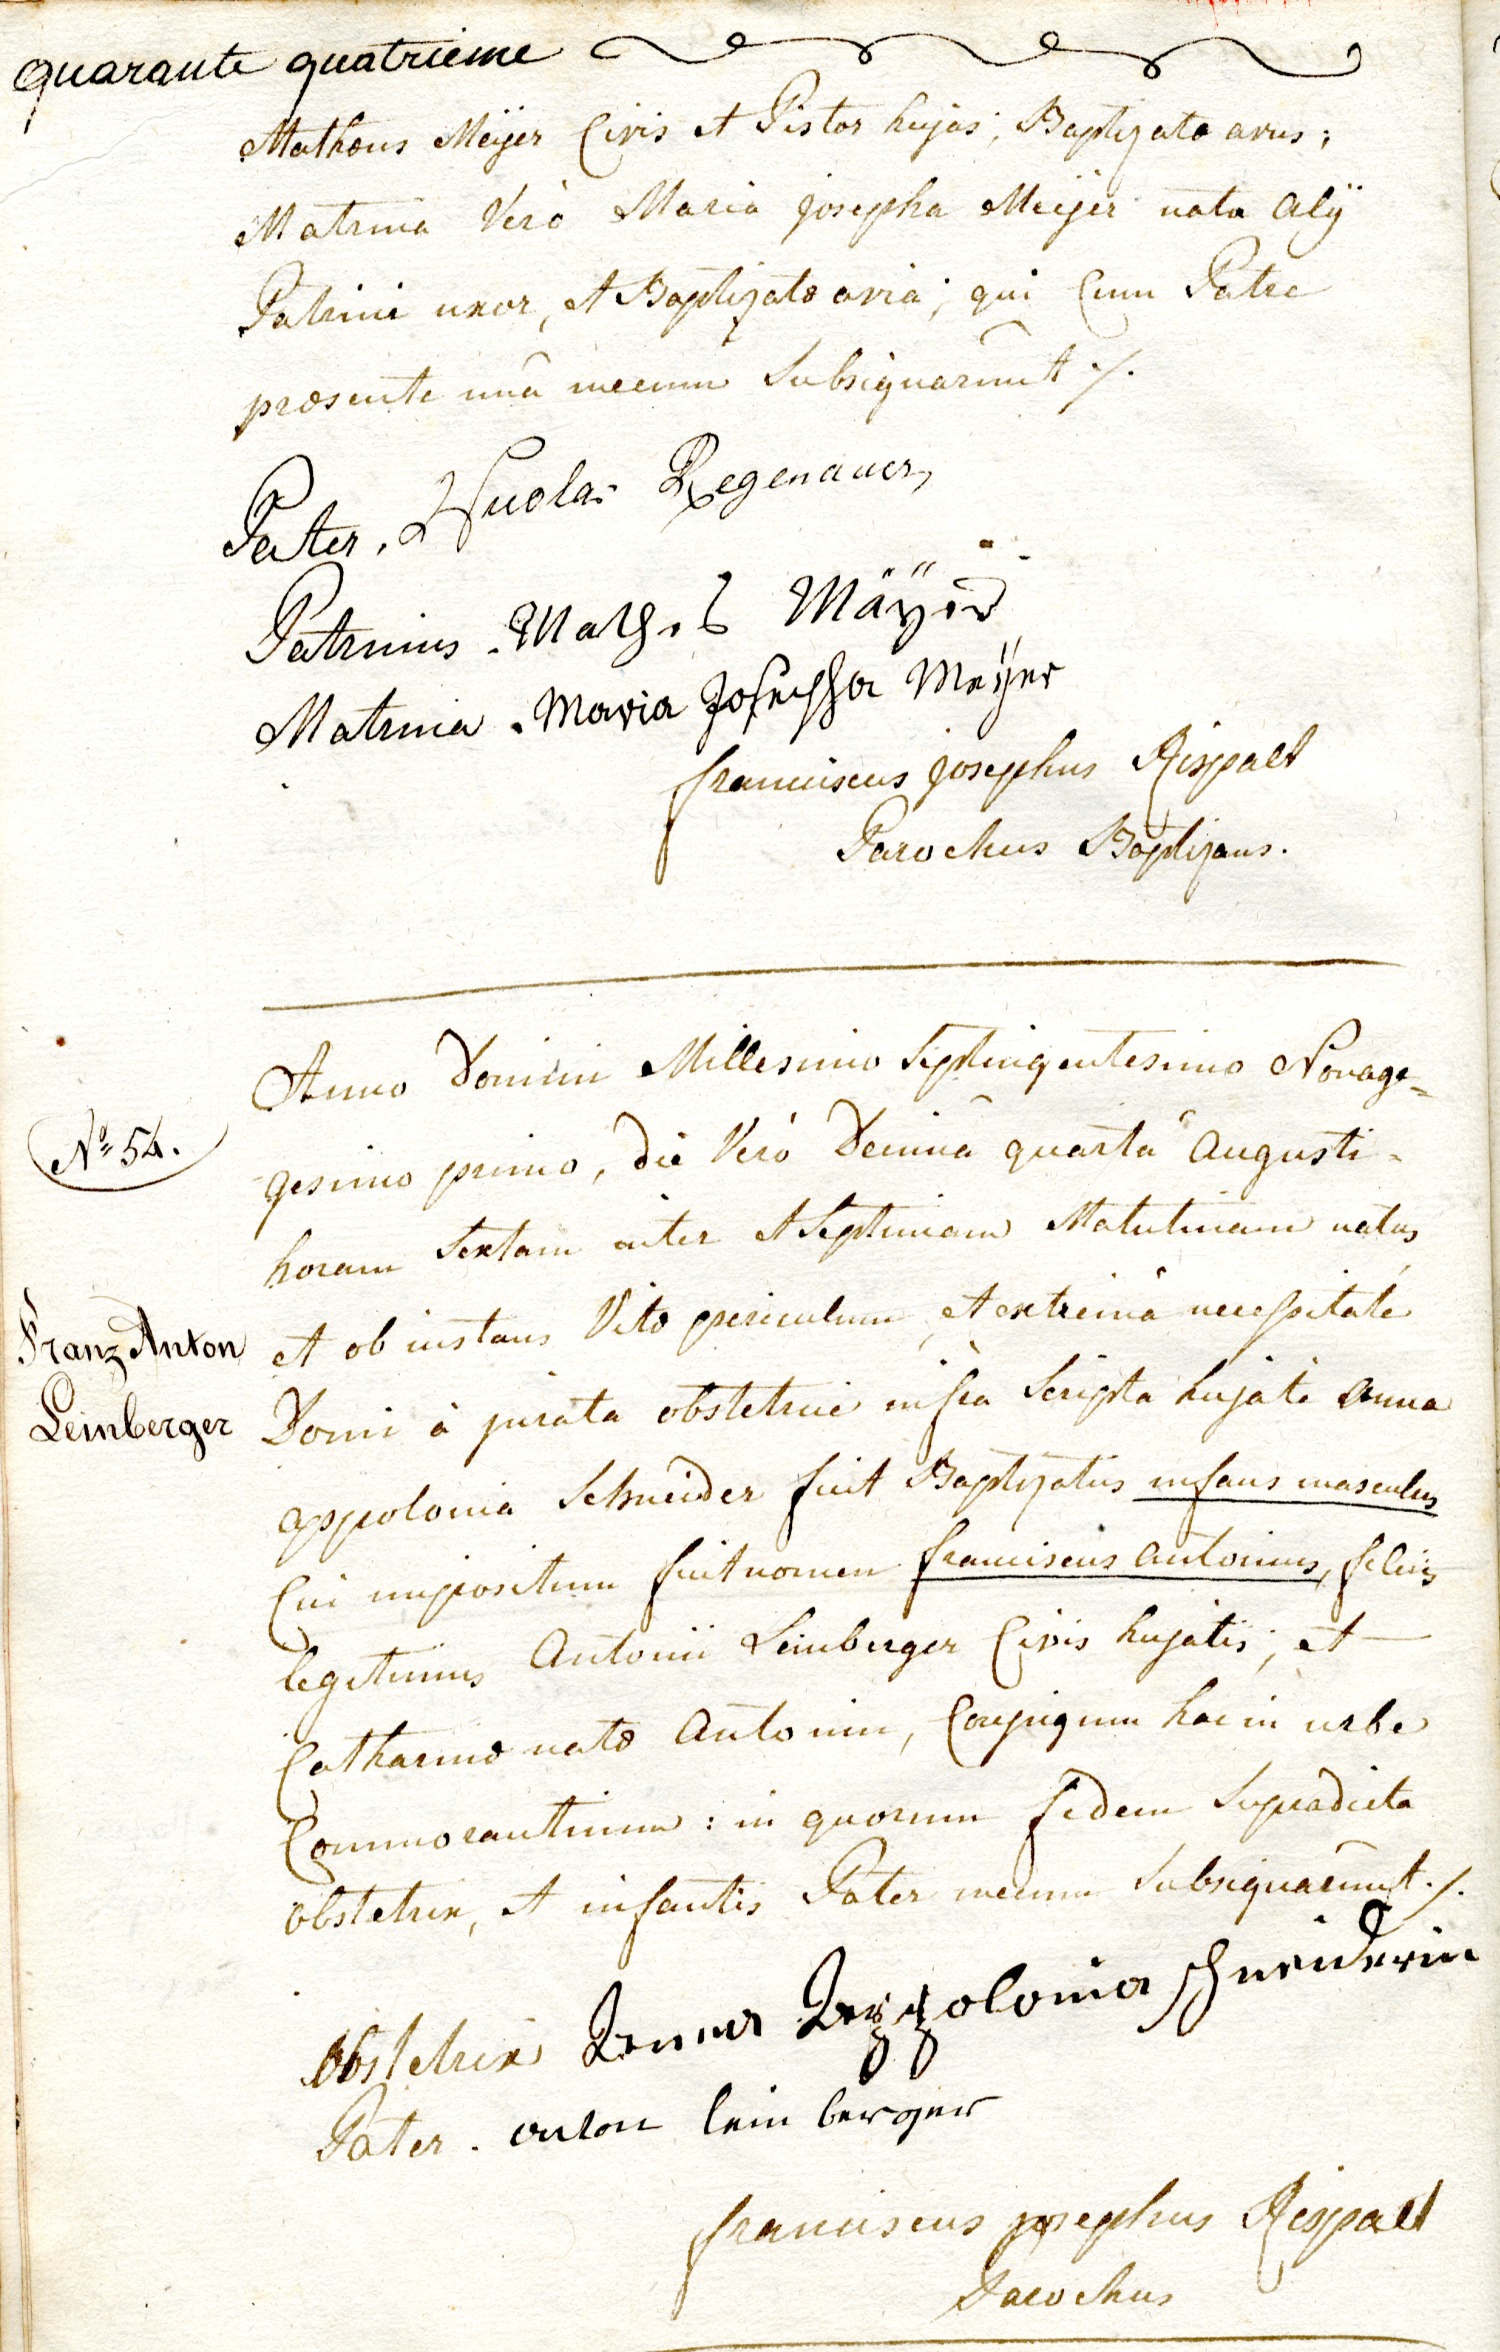 quarante quatrieme
Mathæus Meÿer Civis et Pistor hujas; Baptizatæ avus;
Matrina Verò Maria josepha Meÿer nata Alÿ
Patrini uxor, et Baptizatæ avia; qui Cum Patre
præsente unâ mecum Subsignarunt ./.
Pater. Nicolas Regenauer,
Patrinus. Mathis Mäÿer
Matrina. Maria Josepha Meÿer
franciscus josephus Rispalt
Parochus Baptizans.
Anno Domini Millesimo Septingentesimo Nonage=
N.º 54.
gesimo primo, die Verò Decimâ quartâ Augusti-
horam Sextam inter et Septimam Matutinam natus,
et ob instans Vitæ periculum, et extremâ necessitate
Franz Anton
Leinberger
Domi à jurata obstetrice infra Scripta hujate Anna
appolonia Schneider fuit Baptizatus infans masculus
Cui impositum fuit nomen franciscus antonius, filius
legitimus Antonii Leinberger Civis hujatis; et
Catharinæ natæ Antonin, Conjugum hac in urbe
Commorantium: in quorum fidem Supradicta
obstetrix, et infantis Pater mecum Subsignarunt ./.
Obstetrix Anna Appolonia schneiderin
Pater. anton leinberger
franciscus josephus Rispalt
Parochus